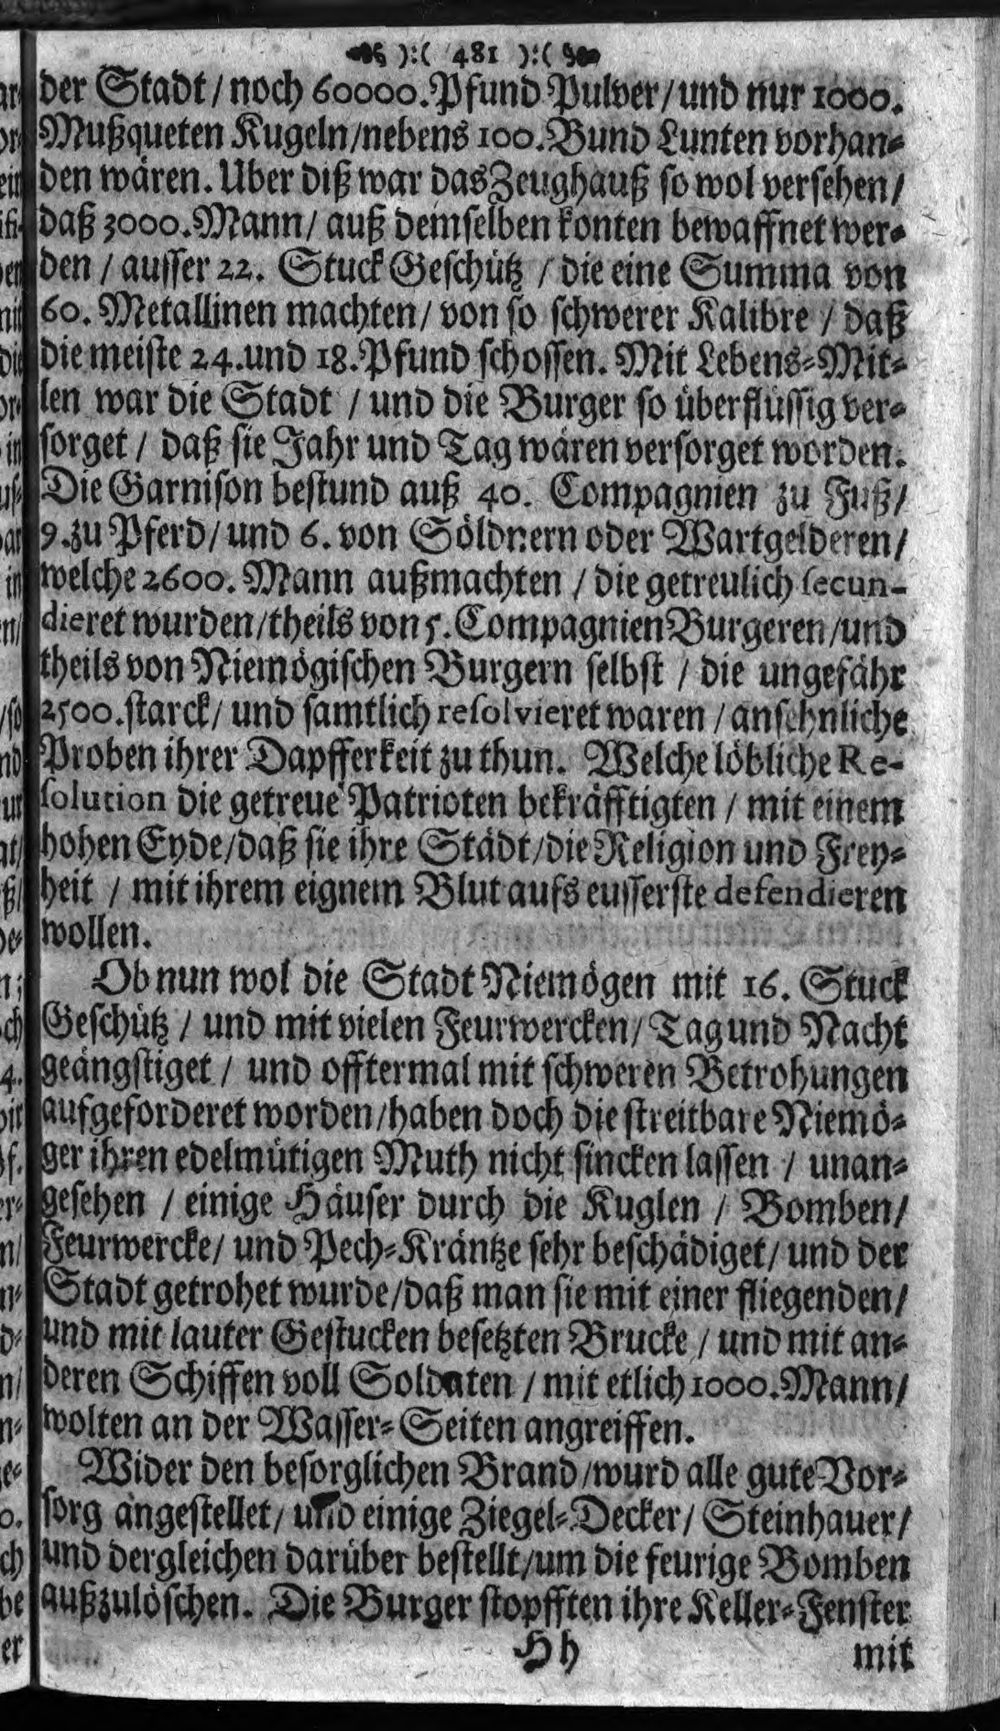 ):( 481 ):(
der Stadt / noch 60000. Pfund Pulver / und nur 1000.
Mußqueten Kugeln / nebens 100. Bund Lunten vorhan-
den wären. Uber diß war das Zeughauß so wol versehen /
daß 3000. Mann / auß demselben konten bewaffnet wer-
den / ausser 22. Stuck Geschütz / die eine Summa von
60. Metallinen machten / von so schwerer Kalibre / daß
die meiste 24. und 18. Pfund schossen. Mit Lebens-Mit-
len war die Stadt / und die Burger so überflüssig ver-
sorget / daß sie Jahr und Tag wären versorget worden.
Die Garnison bestund auß 40. Compagnien zu Fuß /
9. zu Pferd / und 6. von Söldnern oder Wartgelderen /
welche 2600. Mann außmachten / die getreulich secun-
dieret wurden / theils von 5. Compagnien Burgeren / und
theils von Niemögischen Burgern selbst / die ungefähr
2500. starck / und samtlich resolvieret waren / ansehnliche
Proben ihrer Dapfferkeit zu thun. Welche löbliche Re-
solution die getreue Patrioten bekräfftigten / mit einem
hohen Eyde / daß sie ihre Städt / die Religion und Frey-
heit / mit ihrem eignem Blut aufs eusserste defendieren
wollen.
Ob nun wol die Stadt Niemögen mit 16. Stuck
Geschütz / und mit vielen Feurwercken / Tag und Nacht
geängstiget / und offtermal mit schweren Betrohungen
aufgeforderet worden / haben doch die streitbare Niemö-
ger ihren edelmütigen Muth nicht sincken lassen / unan-
gesehen / einige Häuser durch die Kuglen / Bomben /
Feurwercke / und Pech-Kräntze sehr beschädiget / und der
Stadt getrohet wurde / daß man sie mit einer fliegenden /
und mit lauter Gestucken besetzten Brucke / und mit an-
deren Schiffen voll Soldaten / mit etlich 1000. Mann /
wolten an der Wasser-Seiten angreiffen.
Wider den besorglichen Brand / wurd alle gute Vor-
sorg angestellet / und einige Ziegel-Decker / Steinhauer /
und dergleichen darüber bestellt / um die feurige Bomben
außzulöschen. Die Burger stopfften ihre Keller-Fenster
Hh mit